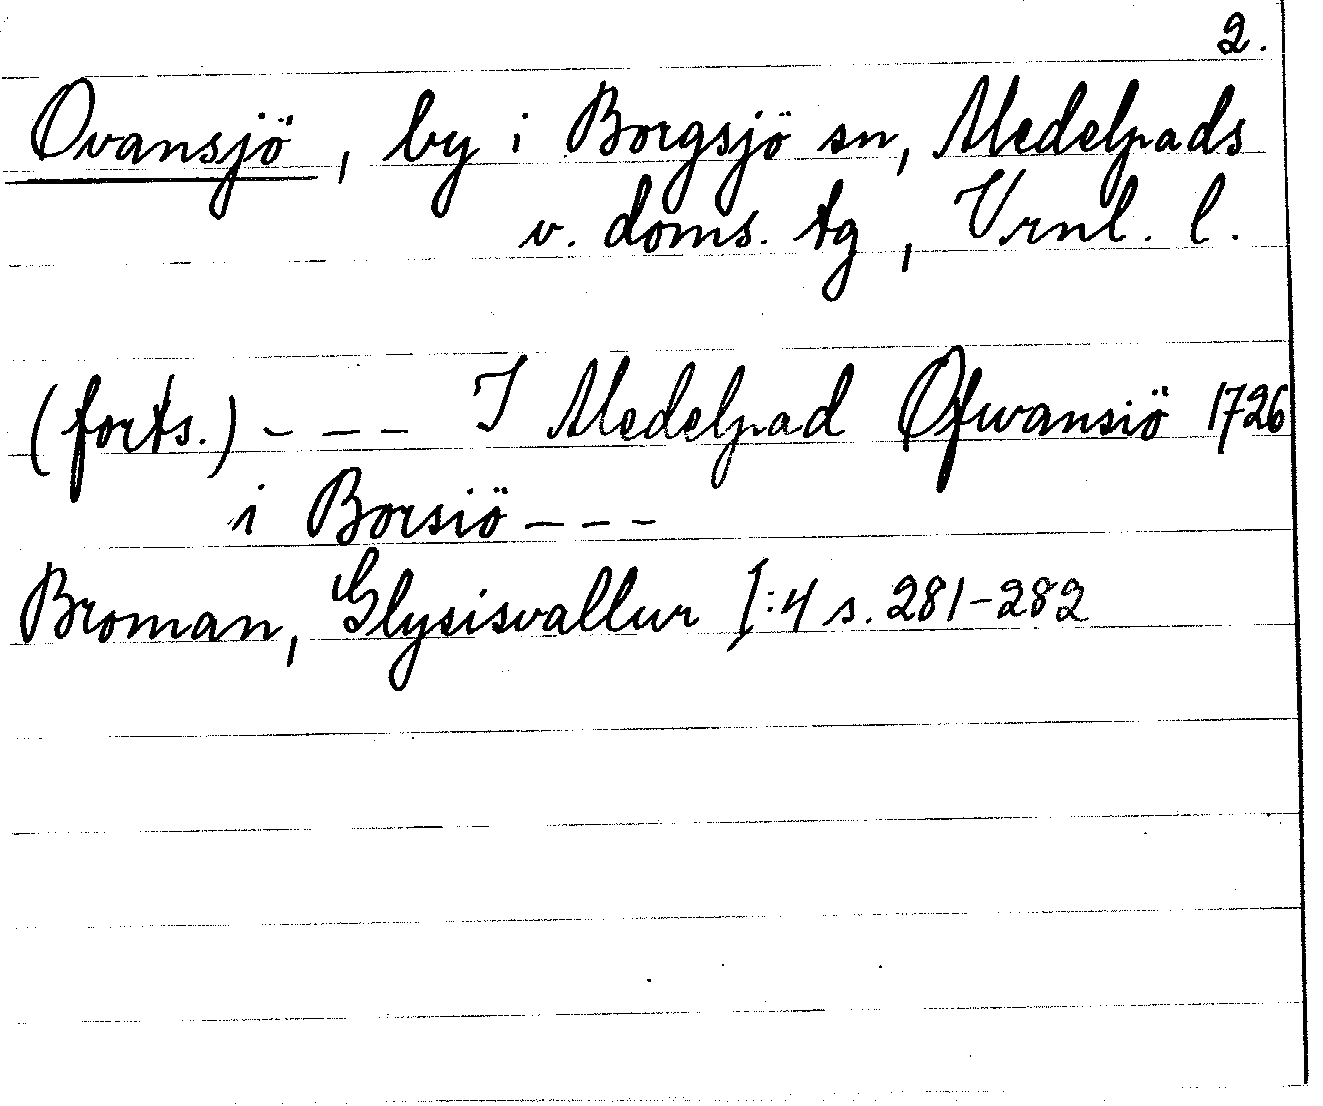 2.
Ovansjö, by i Borgsjö sn, Medelpads
v. doms. tg, Vrnl. l.
(forts.) - - - I Medelpad Øfwansiö 1726
i Borsiö - - -
Broman, Glysisvallur I:4 s. 281-282